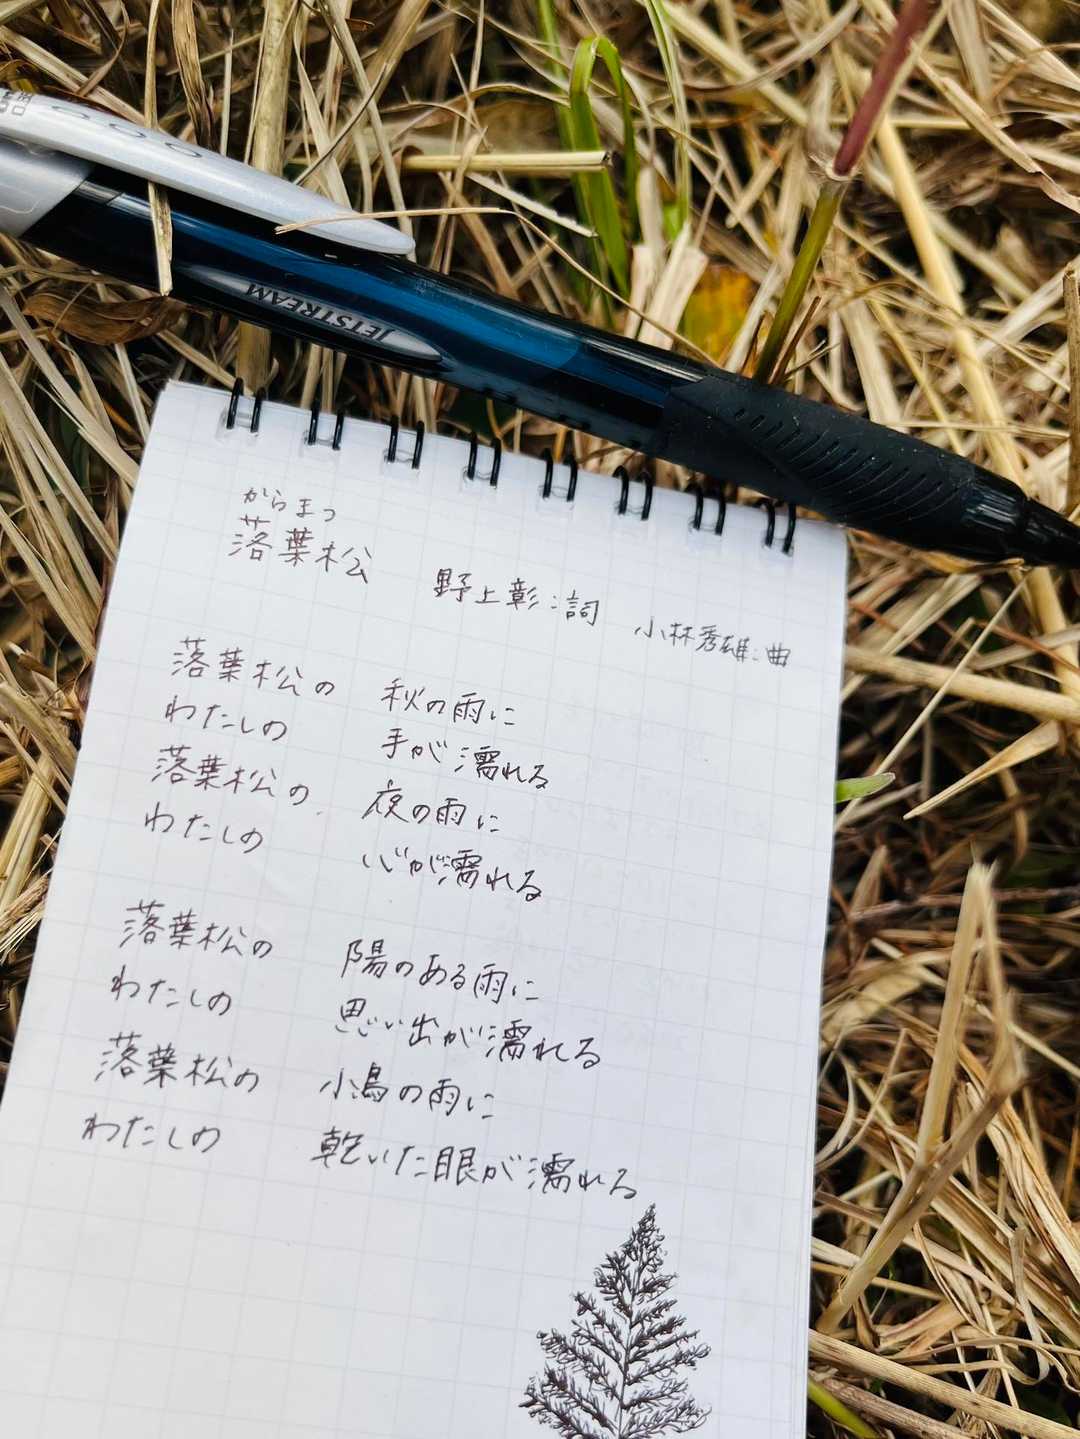 JETSTREAM
からまつ
落葉松 野上彰:詞 小林秀雄:曲
落葉松の 秋の雨に
わたしの 手が濡れる
落葉松の 夜の雨に
わたしの 心が濡れる
落葉松の 陽のある雨に
わたしの 思い出が濡れる
落葉松の 小鳥の雨に
わたしの 乾いた眼が濡れる